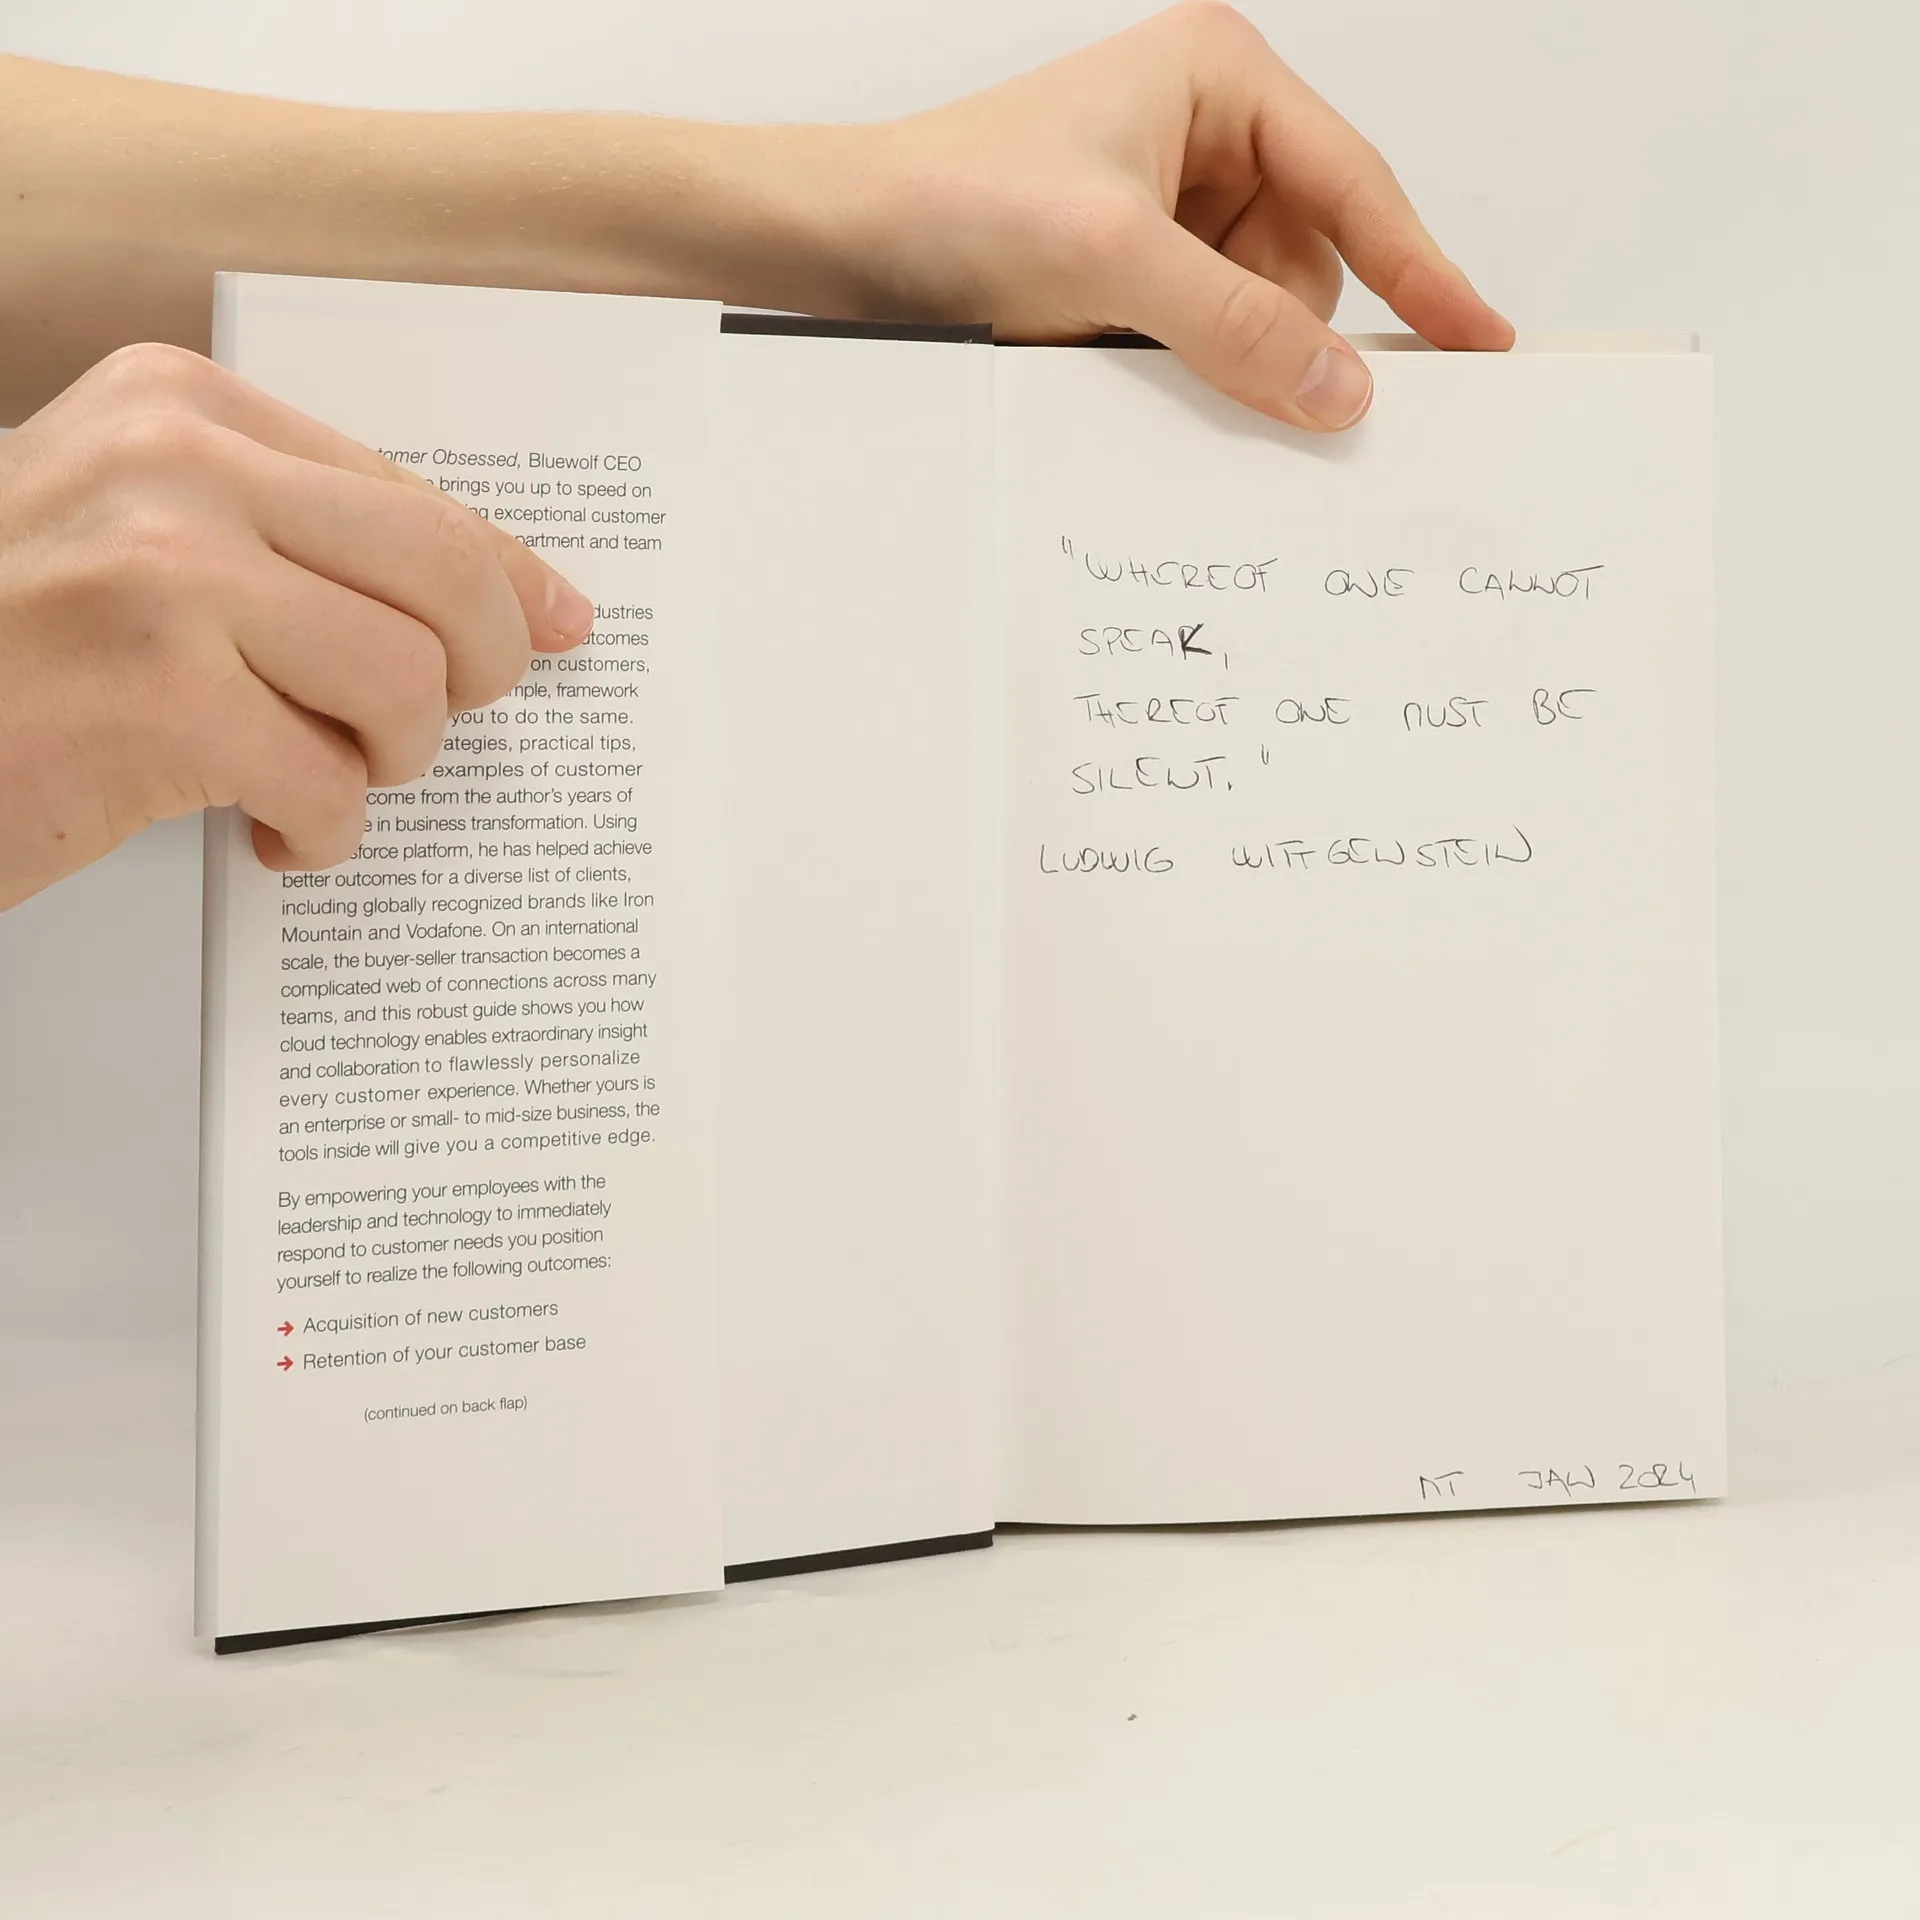 Obsessed, Bluewolf CEO
brings you up to speed on
exceptional customer
and team
on customers,
framework
you to do the same.
practical tips,
examples of customer
come from the author's years of
in business transformation. Using
platform, he has helped achieve
better outcomes for a diverse list of clients,
including globally recognized brands like Iron
Mountain and Vodafone. On an international
scale, the buyer-seller transaction becomes a
complicated web of connections across many
teams, and this robust guide shows you how
cloud technology enables extraordinary insight
and collaboration to flawlessly personalize
every customer experience. Whether yours is
an enterprise or small- to mid-size business, the
tools inside will give you a competitive edge.
By empowering your employees with the
leadership and technology to immediately
respond to customer needs you position
yourself to realize the following outcomes:
→ Acquisition of new customers
→ Retention of your customer base
(continued on back flap)
"WHEREOF ONE CANNOT
SPEAK,
THEREOF ONE MUST BE
SILENT."
LUDWIG WITTGENSTEIN
MT JAN 2024